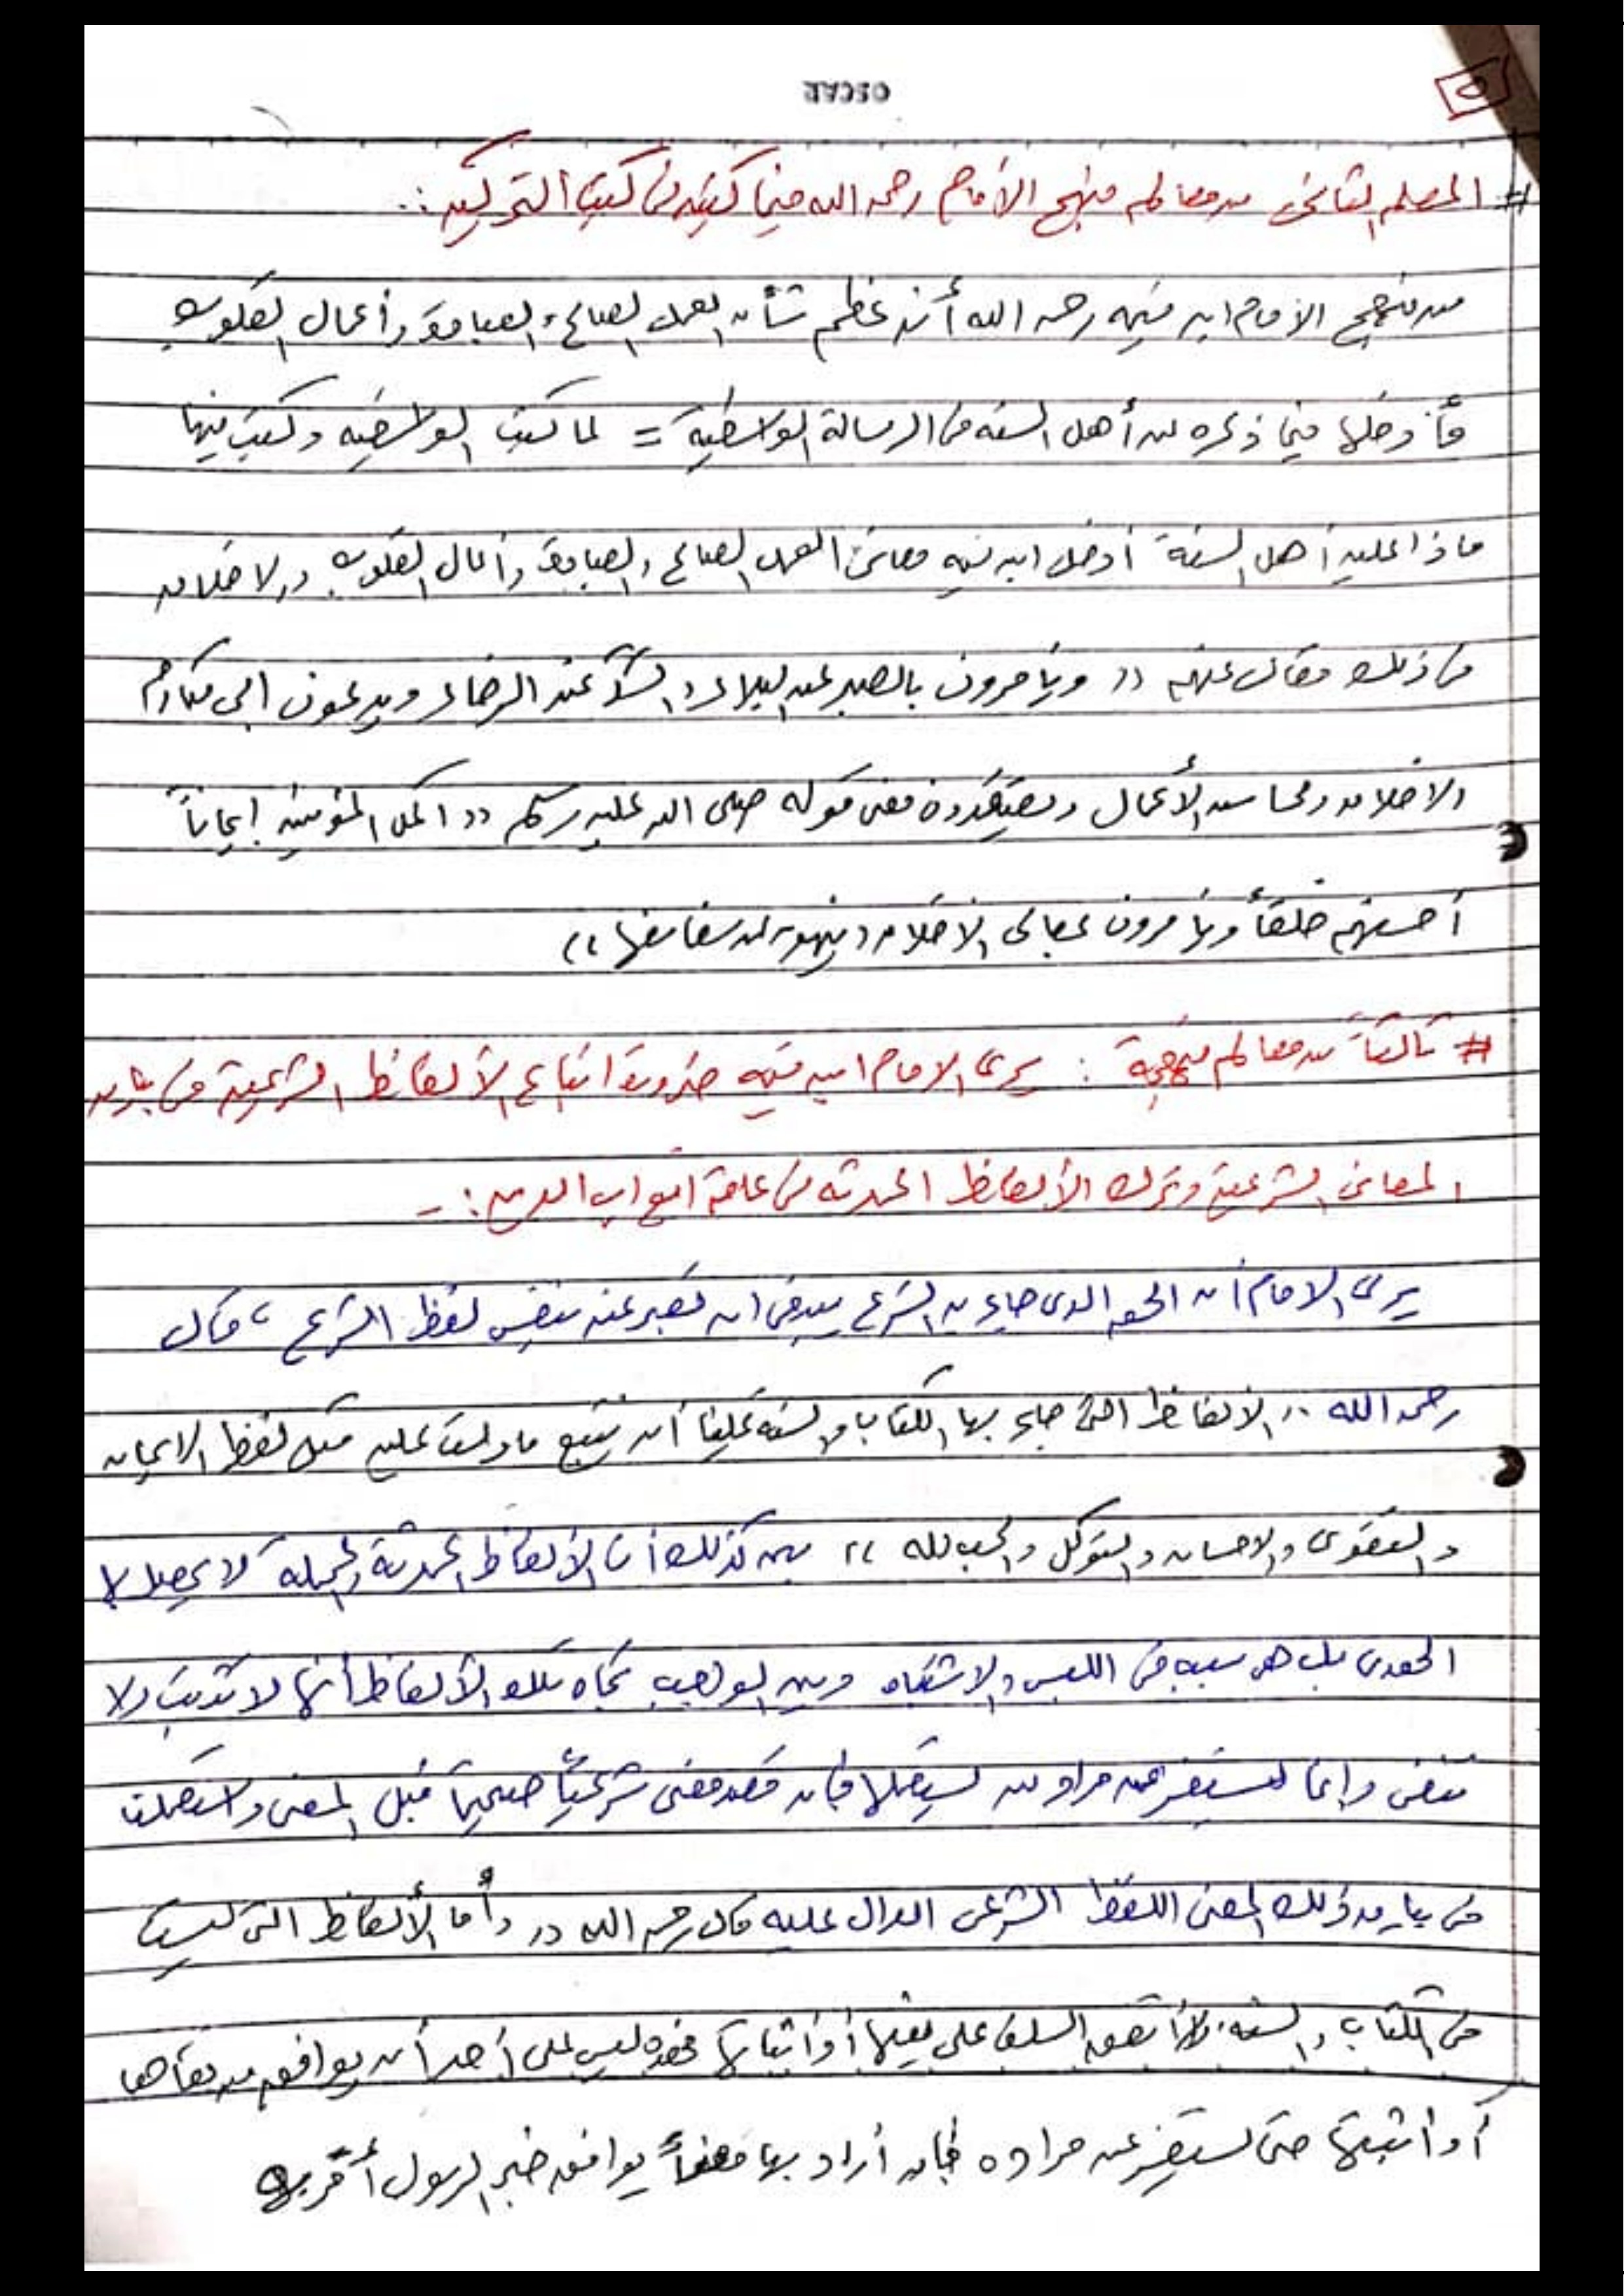 OSCAR
٥
# المعلم الثاني من معالم منهج الأمام رحمه الله فيما كتبه في كتب التزكية :.
من منهج الامام ابن تيميه رحمه الله أنه عظم شأن العمل الصالح والعبادة وأعمال القلوب
فأدخلها فيما ذكره عن أهل السنه في الرسالة الواسطيه = لما كتب الواسطيه وكتب فيها
ماذا عليه أهل السنة أدخل ابن تيميه معاني العمل الصالح والعبادة وأعمال القلوب والاخلاق
في ذلك فقال عنهم (( ويأمرون بالصبر عند البلاء والشكر عند الرخاء ويدعون الى مكارم
الاخلاق ومحاسن الأعمال ويعتقدون معنى قوله صلى الله عليه وسلم (( اكمل المؤمنين ايماناً
أحسنهم خلقاً ويأمرون بمعالي الاخلاق وينهون عن سفاسفها ))
# ثالثاً من معالم منهجية : يرى الامام ابن تيميه ضرورة اتباع الألفاظ الشرعية في باب
المعاني الشرعية وترك الألفاظ المحدثه في عامة ابواب الدين :-
يرى الامام أن الحق الذي جاء به الشرع ينبغي ان نعبر عنه بنفس لفظ الشرع ، قال
رحمه الله ,, الألفاظ التي جاء بها الكتاب والسنه علينا أن نتبع مادلت عليه مثل لفظ الايمان
والتقوى والاحسان والتوكل والحب لله )) بين كذلك أن الألفاظ المحدثة المجمله لا يحصل بها
الهدى بل هي سبب في اللبس والاشتباه وبين الواجب تجاه تلك الألفاظ أنها لا تثبت ولا
تنفى وإنما يستفسر عن مراد من يستعملها فإن قصد معنى شرعياً صحيحاً قبل المعنى واستعملت
في باب ذلك المعنى اللفظ الشرعي الدال عليه قال رحمه الله (( وأما الألفاظ التي ليست
في الكتاب والسنه ولا اتفق السلف على نفيها أو اثباتها فهذه ليس على أحد أن يوافق من نفاها
أو اثبتها حتى يستفسر عن مراده فإن أراد بها معنىً يوافق خبر الرسول أقر به